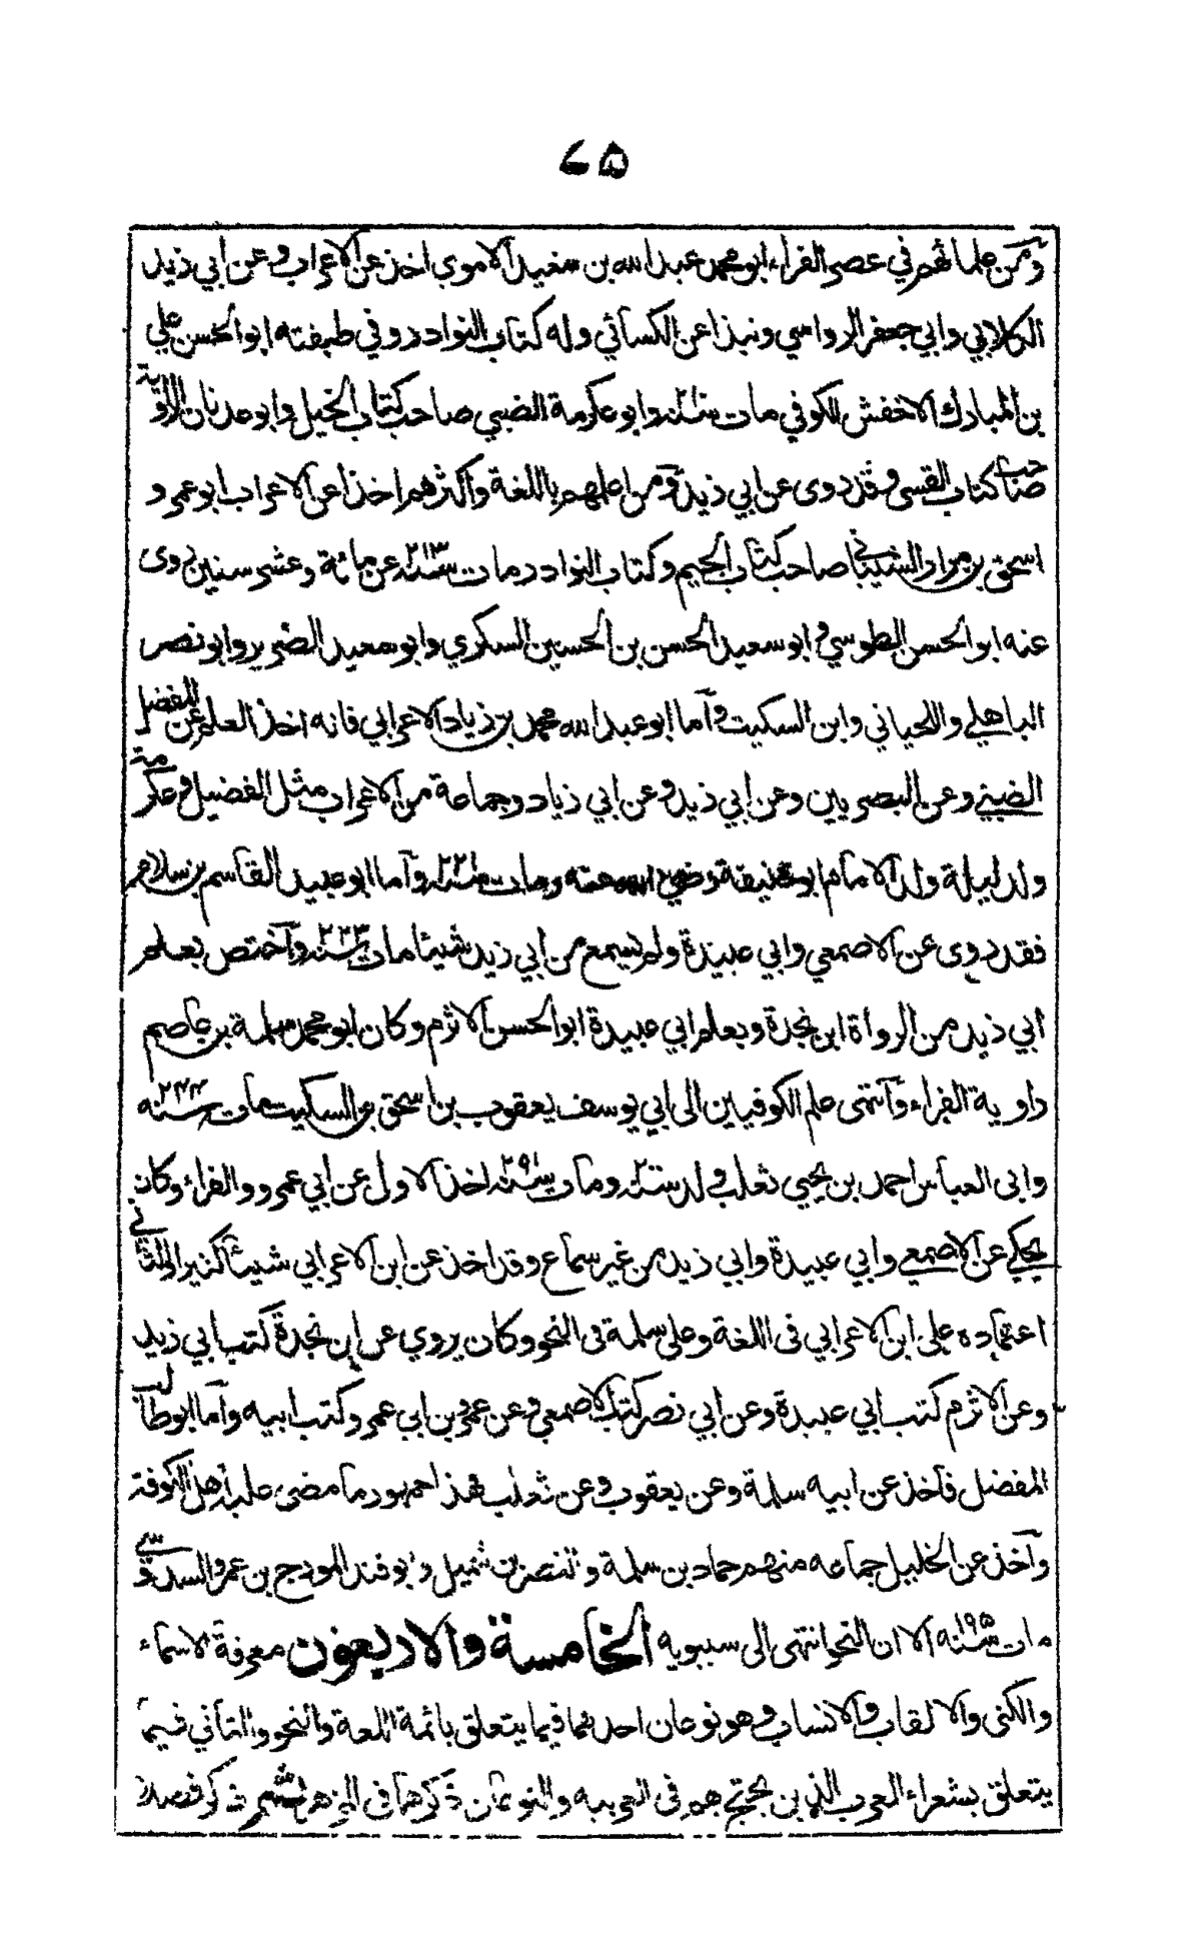 ٦٥
ومن علمائهم في عصر الفراء ابو محمد عبد الله بن سعيد الاموي اخذ عن الاعراب وعن ابي زيد
الكلابي وابي جعفر الرواسي ونبذا عن الكسائي وله كتاب النوادر وفي طبقته ابو الحسن علي
بن المبارك الاخفش الكوفي مات سنة ٢١٠ وابو عكرمة الضبي صاحب كتاب الخيل وابو عدنان الراوية
صاحب كتاب القسى وقد روى عن ابي زيد ومن اعلمهم باللغة واكثرهم اخذا عن الاعراب ابو عمرو
اسحق بن مرار الشيباني صاحب كتاب الجيم وكتاب النوادر مات سنة ٢١٣ عن مائة وعشر سنين روى
عنه ابو الحسن الطوسي و ابو سعيد الحسن بن الحسين السكري وابو سعيد الضرير وابو نصر
الباهلي واللحياني وابن السكيت وآما ابو عبد الله محمد بن زياد الاعرابي فانه اخذ العلم عن المفضل
الضبي وعن البصريين وعن ابي زيد وعن ابي زياد وجماعة من الاعراب مثل الفضيل وعكرمة
ولد ليلة ولد الامام ابو حنيفة رضي الله عنه ومات سنة ٢٣١ وآما ابو عبيد القاسم بن سلام
فقد روى عن الاصمعي وابي عبيدة ولم يسمع من ابي زيد شيئا مات سنة ٢٢٣ وآختص بعلم
ابي زيد من الرواة ابن نجدة وبعلم ابي عبيدة ابو الحسن الاثرم وكان ابو محمد سلمة بن عاصم
راوية الفراء وآنتهى علم الكوفيين الى ابي يوسف يعقوب بن اسحق بن السكيت مات سنه ٢٤٤
وابى العباس احمد بن يحيى ثعلب ولد سنة ٢٠٠ ومات سنة ٢٩١ اخذ الاول عن ابي عمرو والفراء وكان
يحكي عن الاصمعي وابي عبيدة وابي زيد من غير سماع وقد اخذ عن ابن الاعرابي شيئا كثيرا والثاني
اعتماده على ابن الاعرابي فى اللغة وعلى سلمة فى النحو وكان يروي عن ابن نجدة كتب ابي زيد
وعن الاثرم كتب ابي عبيدة وعن ابي نصر كتب الاصمعي وعن عمرو بن ابي عمرو كتب ابيه وآما ابو طالب
المفضل فآخذ عن ابيه سلمة وعن يعقوب وعن ثعلب فهذا جمهور ما مضى عليه اهل الكوفة
وآخذ عن الخليل جماعه منهم حماد بن سلمة والنضر بن شميل وابو فيد المورج بن عمرو السدوسي
مات سنه ١٩٥ الا ان النحو انتهى الى سيبويه الخامسة والاربعون معرفة الاسماء
والكنى والالقاب والانساب وهو نوعان احدهما فيما يتعلق بائمة اللغة والنحو والثاني فيما
يتعلق بشعراء العرب الذين يحتج بهم فى العربيه والنوعان ذكرهما فى المزهر ثم ذكر فصلا